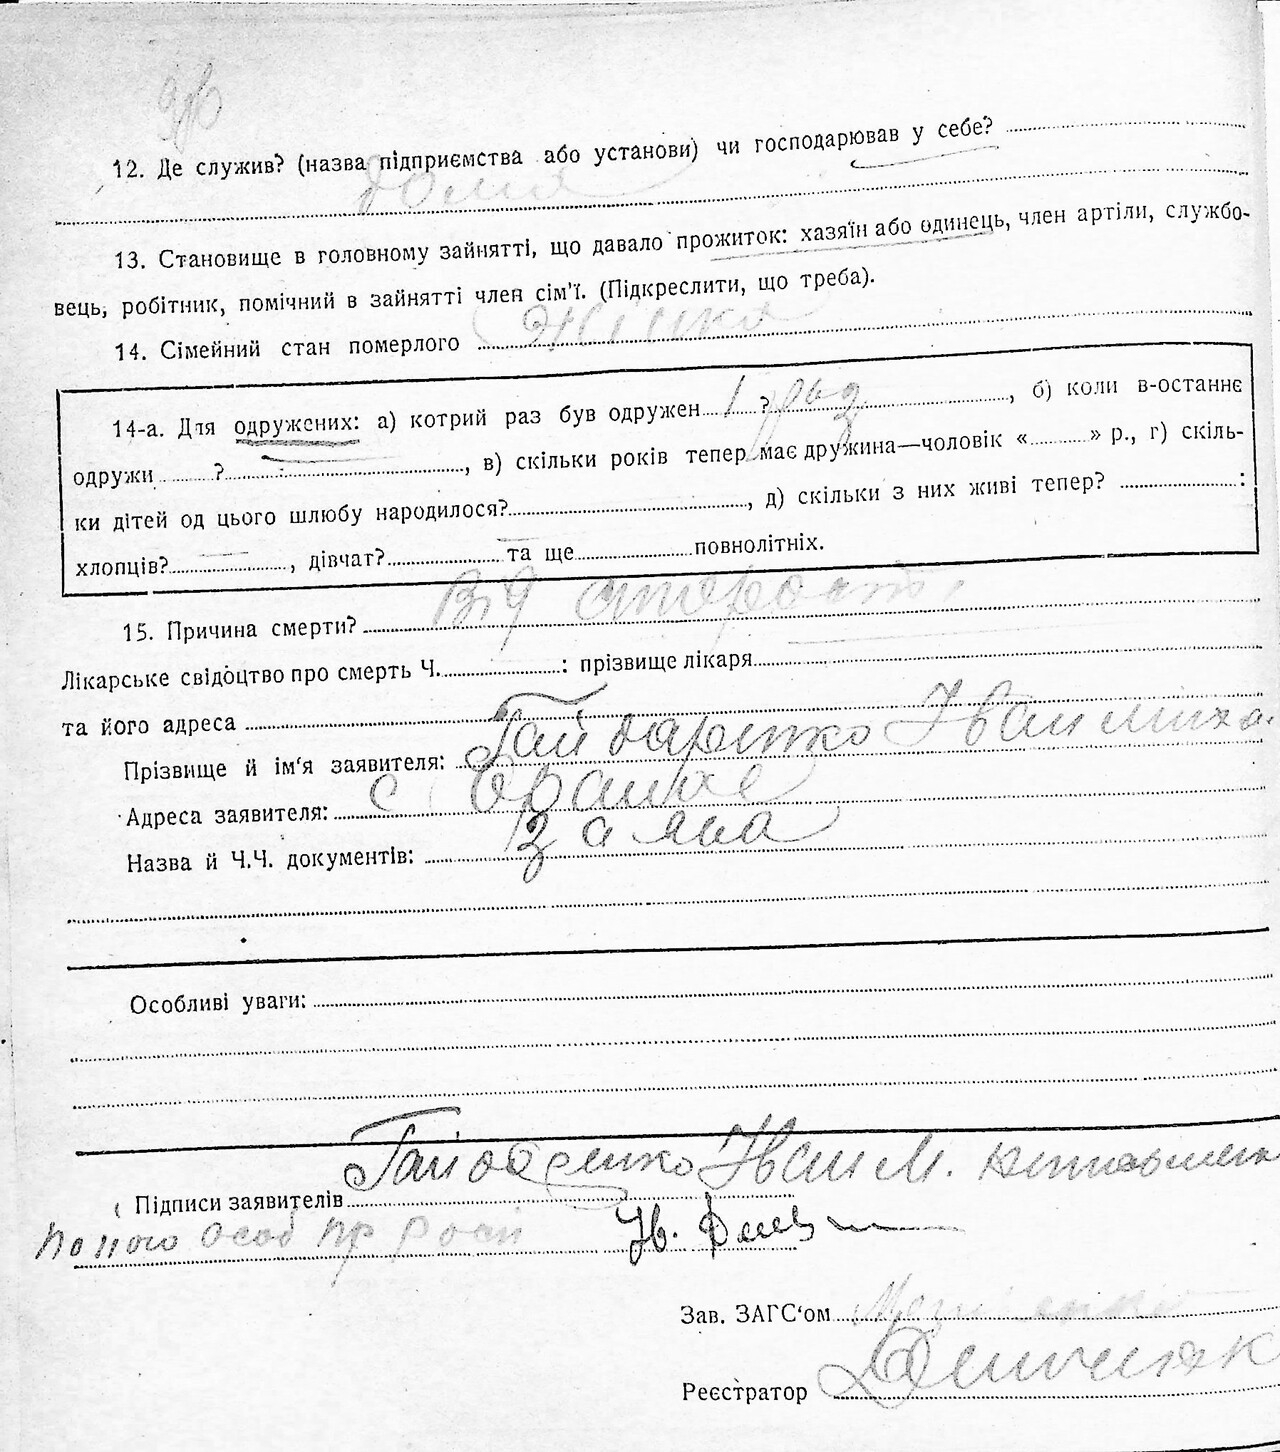 12. Де служив? (назва підприємства або установи) чи господарював у себе?
дома
13. Становище в головному зайнятті, що давало прожиток: хазяїн або одинець, член артіли, службо-
вець, робітник, помічний в зайнятті член сім'ї. (Підкреслити, що треба).
14. Сімейний стан померлого жінка
14-а. Для одружених: а) котрий раз був одружен 1 ? раз, б) коли в-останнє
одружи ?, в) скільки років тепер має дружина—чоловік « » р., г) скіль-
ки дітей од цього шлюбу народилося?, д) скільки з них живі тепер? :
хлопців?, дівчат? та ще повнолітніх.
15. Причина смерти? Від старости
Лікарське свідоцтво про смерть Ч. : прізвище лікаря
та його адреса
Прізвище й ім'я заявителя: Гайдаренко Іван Миха
Адреса заявителя: с
Назва й Ч.Ч. документів: заява
Особливі уваги:
Підписи заявителів Гайдаренко Іван М.
його особ
Зав. ЗАГС'ом
Реєстратор